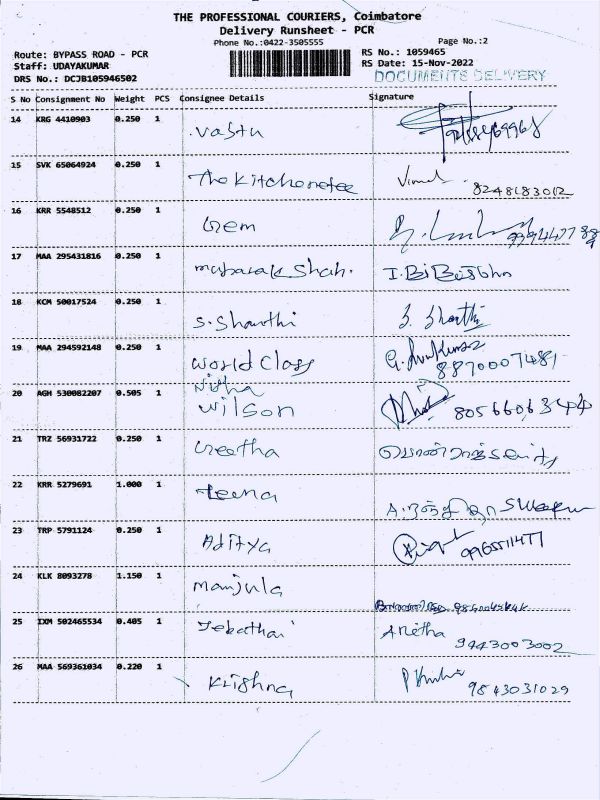 THE PROFESSIONAL COURIERS, Coimbatore
Delivery Runsheet - PCR
Phone No.:0422-3505555
Page No.:2
Route: BYPASS ROAD - PCR
RS No.: 1059465
Staff: UDAYAKUMAR
RS Date: 15-Nov-2022
DRS No.: DCJB105946502
DOCUMENTS DELIVERY
S No Consignment No Weight PCS Consignee Details Signature
14 KRG 4410903 0.250 1 Vastu
15 SVK 65064924 0.250 1 The Kitchenetee 8248183012
16 KRR 5548512 0.250 1 Gem
17 MAA 295431816 0.250 1 mubarak Shah.
18 KCM 50017524 0.250 1 S. Shanthi S. Shanthi
19 MAA 294592148 0.250 1 World Class 8870007481
20 AGM 530082207 0.505 1 Nisha Wilson 8056606344
21 TRZ 56931722 0.250 1 Geetha
22 KRR 5279691 1.000 1 Heena
23 TRP 5791124 0.250 1 Aditya 9965511477
24 KLK 8093278 1.150 1 Manjula
25 IXM 502465534 0.405 1 Jebathai Anetha 9443003002
26 MAA 569361034 0.220 1 Krishna 9843031029